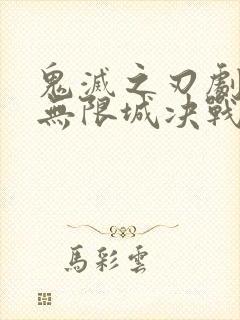 鬼滅之刃劇
無限城決戰
馬彩雲